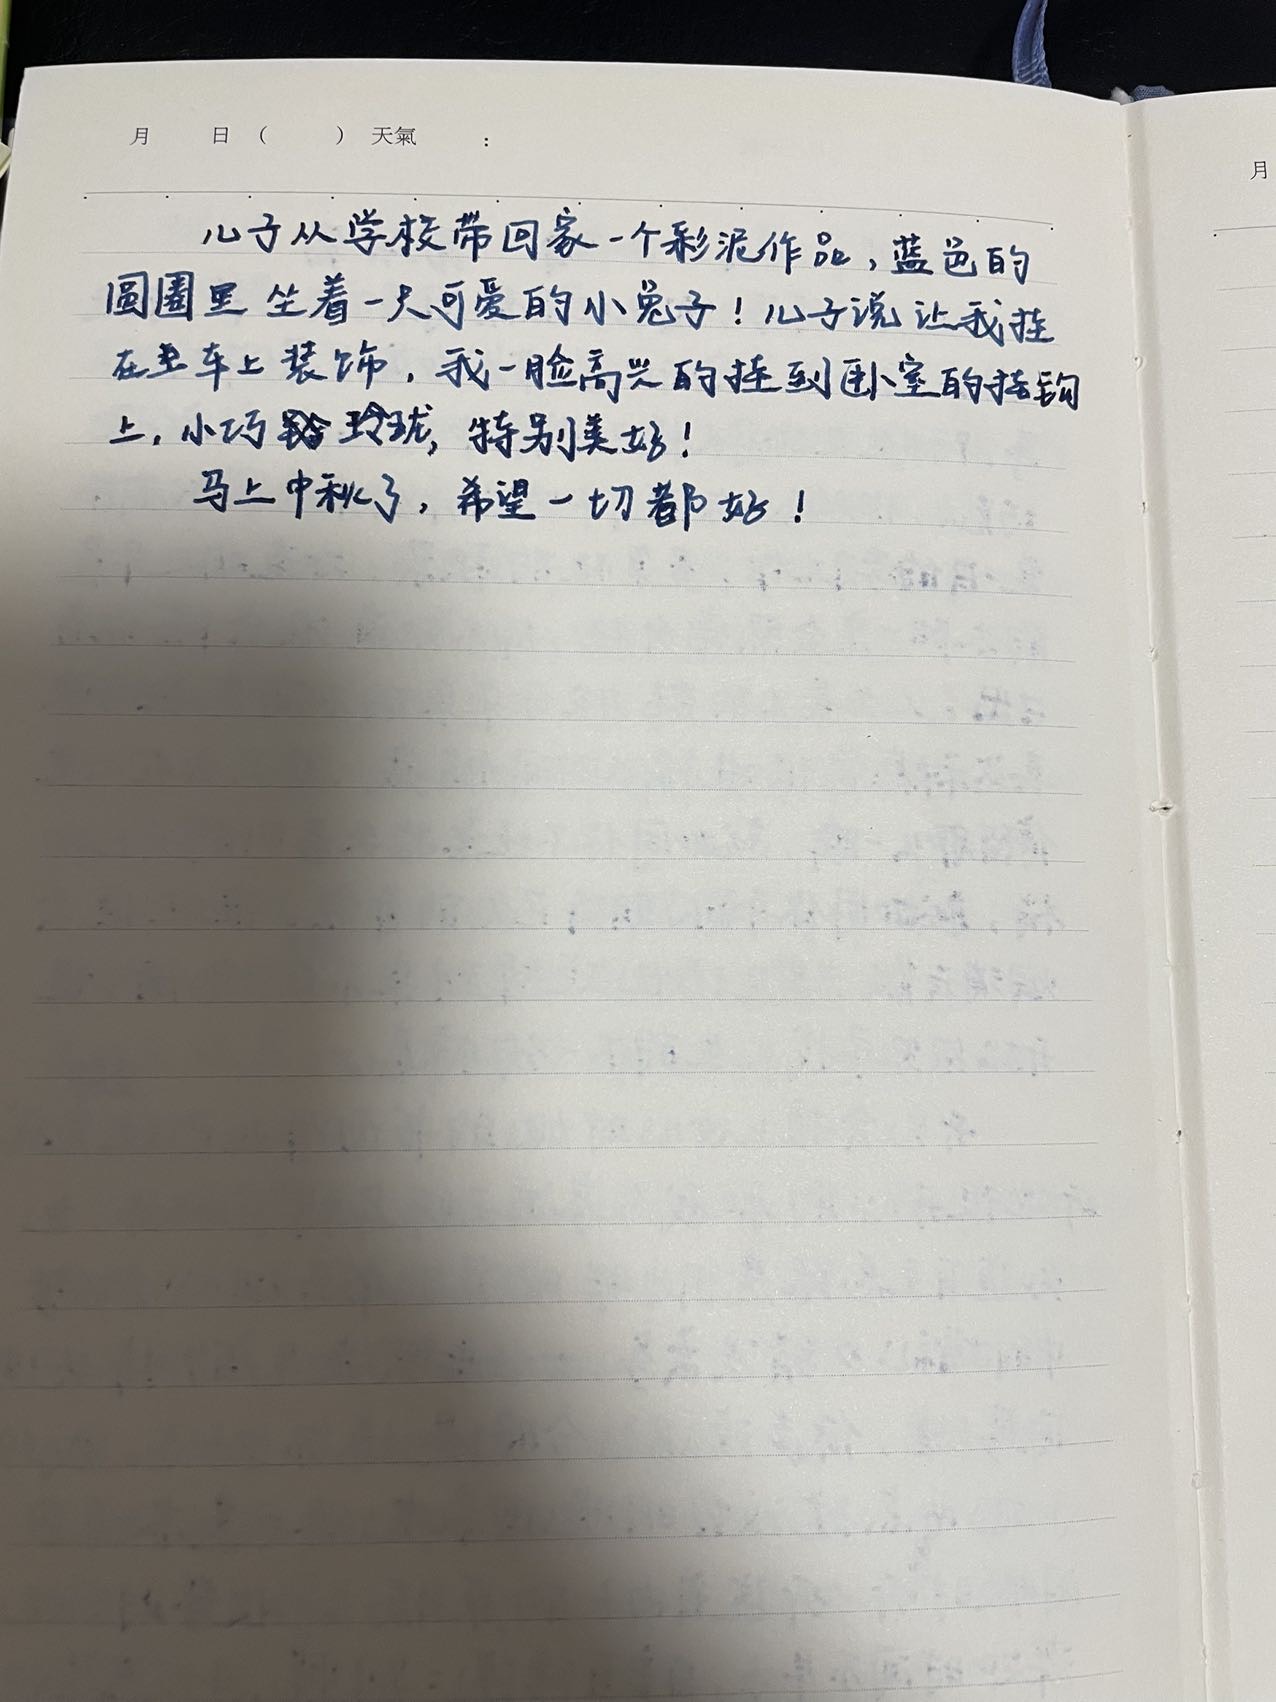 月 日( )天氣 :
月
儿子从学校带回家一个彩泥作品,蓝色的
圆圈里坐着一只可爱的小兔子!儿子说让我挂
在车上装饰,我一脸高兴的挂到卧室的挂钩
上,小巧玲珑,特别美好!
马上中秋了,希望一切都好!